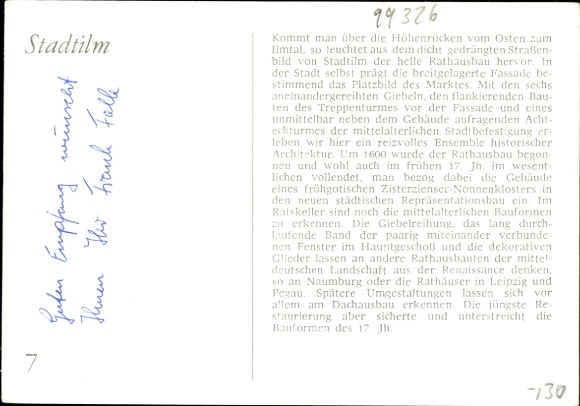 99326
Stadtilm
Guten Empfang wünscht
Ihnen Ihr Frank Falle
Kommt man über die Höhenrücken vom Osten zum
Ilmtal, so leuchtet aus dem dicht gedrängten Straßen-
bild von Stadtilm der helle Rathausbau hervor. In
der Stadt selbst prägt die breitgelagerte Fassade be-
stimmend das Platzbild des Marktes. Mit den sechs
aneinandergereihten Giebeln, den flankierenden Bau-
ten des Treppenturmes vor der Fassade und eines
unmittelbar neben dem Gebäude aufragenden Acht-
eckturmes der mittelalterlichen Stadtbefestigung er-
leben wir hier ein reizvolles Ensemble historischer
Architektur. Um 1600 wurde der Rathausbau begon-
nen und wohl auch im frühen 17. Jh. im wesent-
lichen vollendet, man bezog dabei die Gebäude
eines frühgotischen Zisterzienser-Nonnenklosters in
den neuen städtischen Repräsentationsbau ein. Im
Ratskeller sind noch die mittelalterlichen Bauformen
zu erkennen. Die Giebelreihung, das lang durch-
laufende Band der paarig miteinander verbunde-
nen Fenster im Hauptgeschoß und die dekorativen
Glieder lassen an andere Rathausbauten der mittel-
deutschen Landschaft aus der Renaissance denken,
so an Naumburg oder die Rathäuser in Leipzig und
Pegau. Spätere Umgestaltungen lassen sich vor
allem am Dachausbau erkennen. Die jüngste Re-
staurierung aber sicherte und unterstreicht die
Bauformen des 17. Jh.
7
-,130